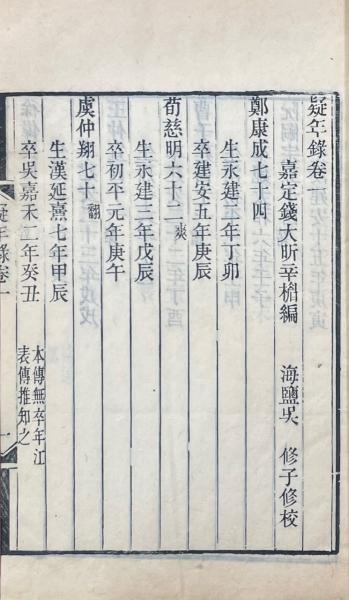 疑年錄卷一
嘉定錢大昕辛楣編　海鹽吳　修子修校
鄭康成七十四
生永建二年丁卯
卒建安五年庚辰
荀慈明六十三爽
生永建三年戊辰
卒初平元年庚午
虞仲翔七十翻
生漢延熹七年甲辰
卒吳嘉禾二年癸丑 本傳無卒年江
表傳推知之
疑年錄卷一
一